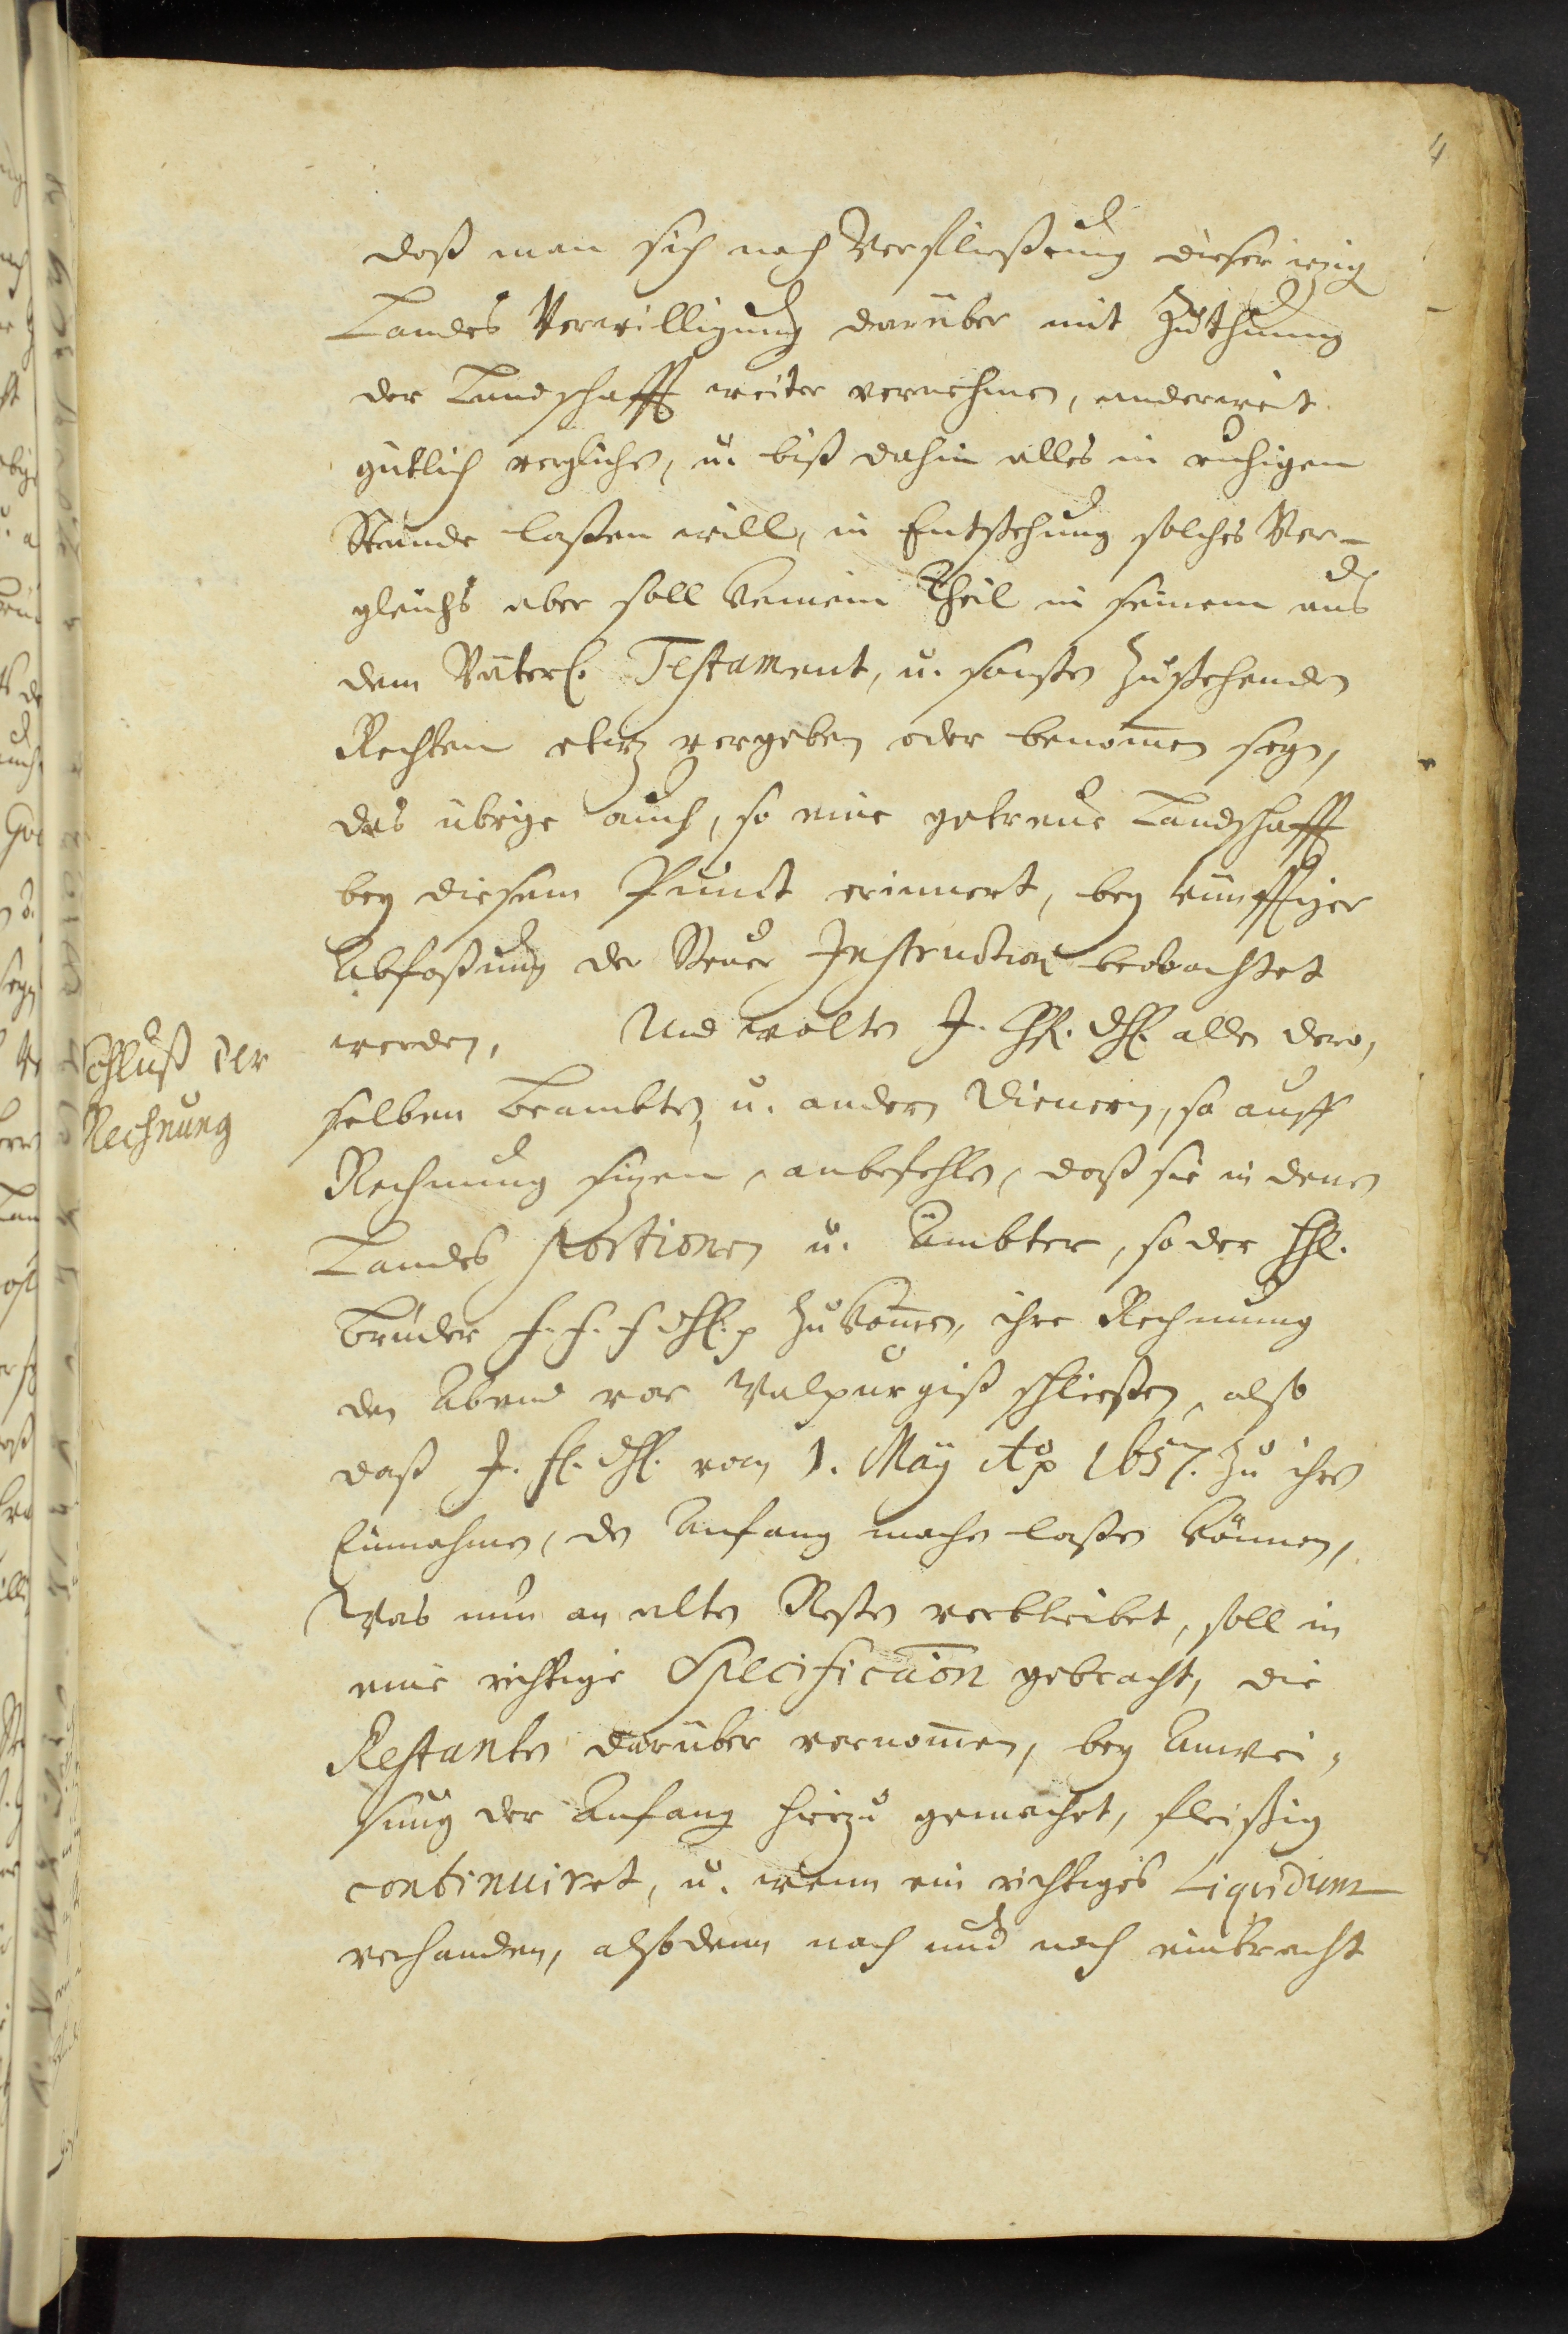 4
daß man sich nach Verfließung dieser izig
Landes Verwilligung darüber mit Zuthuung
der Landschafft weiter vernehmen, anderweit
gütlich vergliche, u. biß dahin alles in ruhigem
Stande laßen will, in Entstehung solches Ver-
gleichs aber soll keinem Theil in seinem aus
dem Väterl. Testament, u. sonsten zustehenden
Rechten etwz vergeben oder benomen seyn,
das übrige auch, so eine getreue Landschafft
bey diesem Punct erinnert, bey künfftiger
Abfaßung der Steuer Instruction beobachtet
werden, Und wolten J. Chf. dhl. allen dero,
Schluß der
Rechnung
selben Beambten, u. andern Dienern, so auff
Rechnung sizen, anbefehlen, daß sie in denen
Landes Portionen u. Ämbter, so der
Brüder f. f. f dhl. zukomen, ihre Rechnung
den Abend vor Walpurgiß schließen, also
daß J. fl. dhl. vom 1. Maÿ Ao 1657. zu ihrer
Einnahme, den Anfang machen laßen können,
Was nun an alten Resten verbleibet, soll in
eine richtige Specification gebracht, die
Restanten darüber vernomen, bey Anwei,
sung der Anfang hierzu gemachet, fleißig
continuiret, u. wenn ein richtiges Liquidum
vorhanden, alßdenn nach und nach einbracht